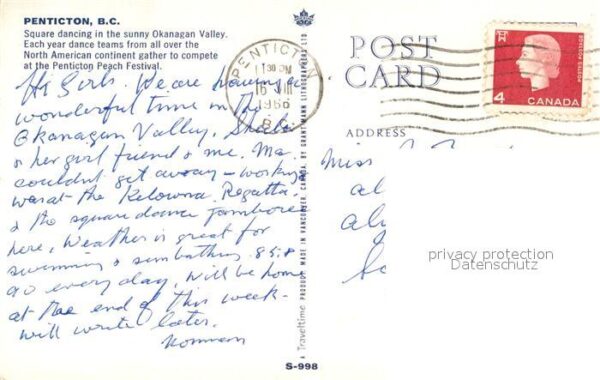 PENTICTON, B.C.
Square dancing in the sunny Okanagan Valley.
Each year dance teams from all over the
North American continent gather to compete
at the Penticton Peach Festival.
Hi Girls. We are having a
wonderful time in the
Okanagan Valley,
& her girl friend & me. Ma
couldn't get away - working
was at the Kelowna Regatta,
& the square dance jamboree
here. Weather is great for
swimming & sunbathing. 85 &
90 every day. Will be home
at the end of this week -
will write later.
S-998
Traveltime PRODUCT. MADE IN VANCOUVER, CANADA, BY GRANT-MANN LITHOGRAPHERS LTD.
PENTICTON
1 30 PM
16 VIII
1966
B.C.
POST
CARD
4
CANADA
ADDRESS
Miss
privacy protection
Datenschutz